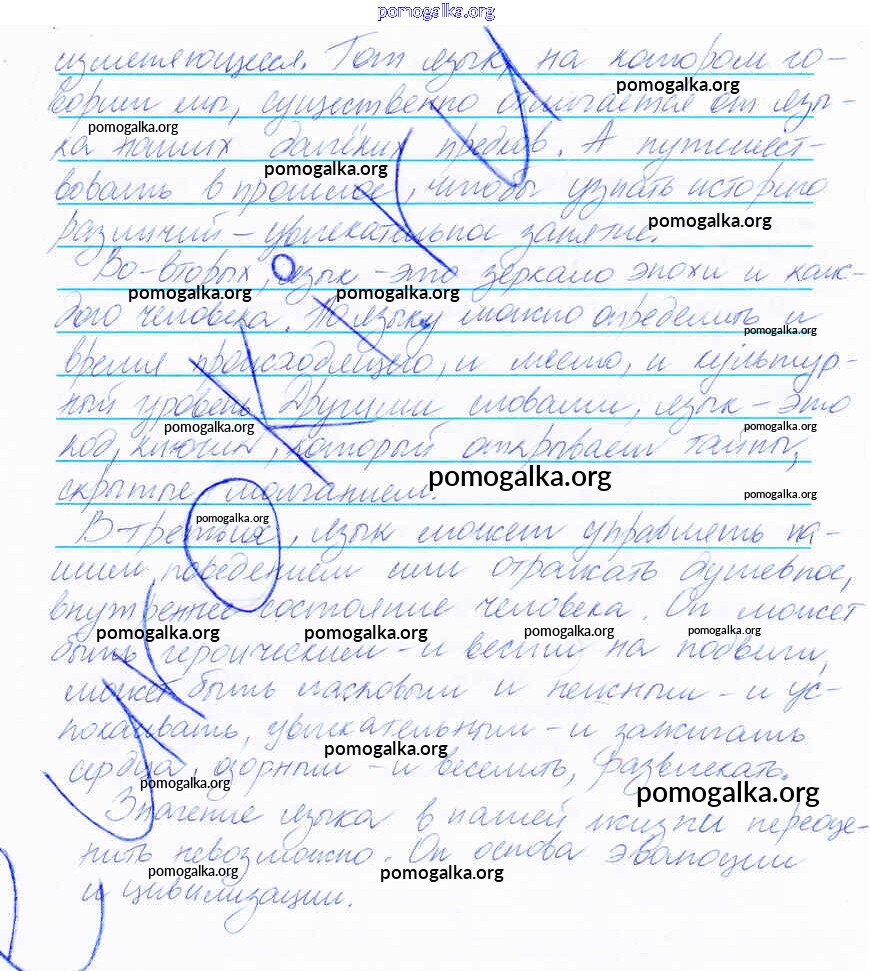 pomogalka.org
изменяющееся. Тот язык, на котором го-
pomogalka.org
ворим мы, существенно отличается от язы-
pomogalka.org
ка наших далёких предков. А путешест-
pomogalka.org
вовать в прошлое, чтобы узнать историю
pomogalka.org
различий – увлекательное занятие.
Во-вторых, язык – это зеркало эпохи и каж-
pomogalka.org pomogalka.org
дого человека. По языку можно определить и
pomogalka.org
время происходящего, и место, и культур-
ный уровень. Другими словами, язык – это
pomogalka.org pomogalka.org
код, ключик, который открывает тайны,
pomogalka.org
скрытые молчанием.
pomogalka.org
pomogalka.org
В-третьих, язык может управлять на-
шим поведением или отражать душевное,
внутреннее состояние человека. Он может
pomogalka.org pomogalka.org pomogalka.org pomogalka.org
быть героическим – и вести на подвиги,
может быть ласковым и нежным – и ус-
покаивать, увлекательным – и зажигать
pomogalka.org
сердца, озорным – и веселить, развлекать.
pomogalka.org pomogalka.org
Значение языка в нашей жизни переоце-
нить невозможно. Он основа эволюции
pomogalka.org pomogalka.org
и цивилизации.